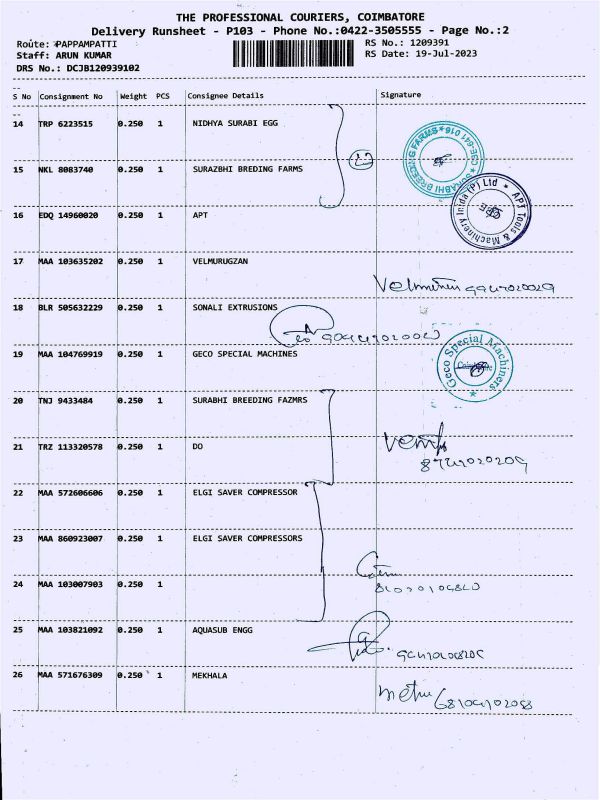 THE PROFESSIONAL COURIERS, COIMBATORE
Delivery Runsheet - P103 - Phone No.:0422-3505555 - Page No.:2
Route: PAPPAMPATTI RS No.: 1209391
Staff: ARUN KUMAR RS Date: 19-Jul-2023
DRS No.: DCJB120939102
S No Consignment No Weight PCS Consignee Details Signature
14 TRP 6223515 0.250 1 NIDHYA SURABI EGG
15 NKL 8083740 0.250 1 SURAZBHI BREDING FARMS
SURABHI BREEDING FARMS
16 EDQ 14960020 0.250 1 APT
APT Tools & Machinery Inida (P) Ltd
17 MAA 103635202 0.250 1 VELMURUGZAN
18 BLR 505632229 0.250 1 SONALI EXTRUSIONS
19 MAA 104769919 0.250 1 GECO SPECIAL MACHINES
Geco Special Machiners
20 TNJ 9433484 0.250 1 SURABHI BREEDING FAZMRS
21 TRZ 113320578 0.250 1 DO
22 MAA 572606606 0.250 1 ELGI SAVER COMPRESSOR
23 MAA 860923007 0.250 1 ELGI SAVER COMPRESSORS
24 MAA 103007903 0.250 1
25 MAA 103821092 0.250 1 AQUASUB ENGG
26 MAA 571676309 0.250 1 MEKHALA